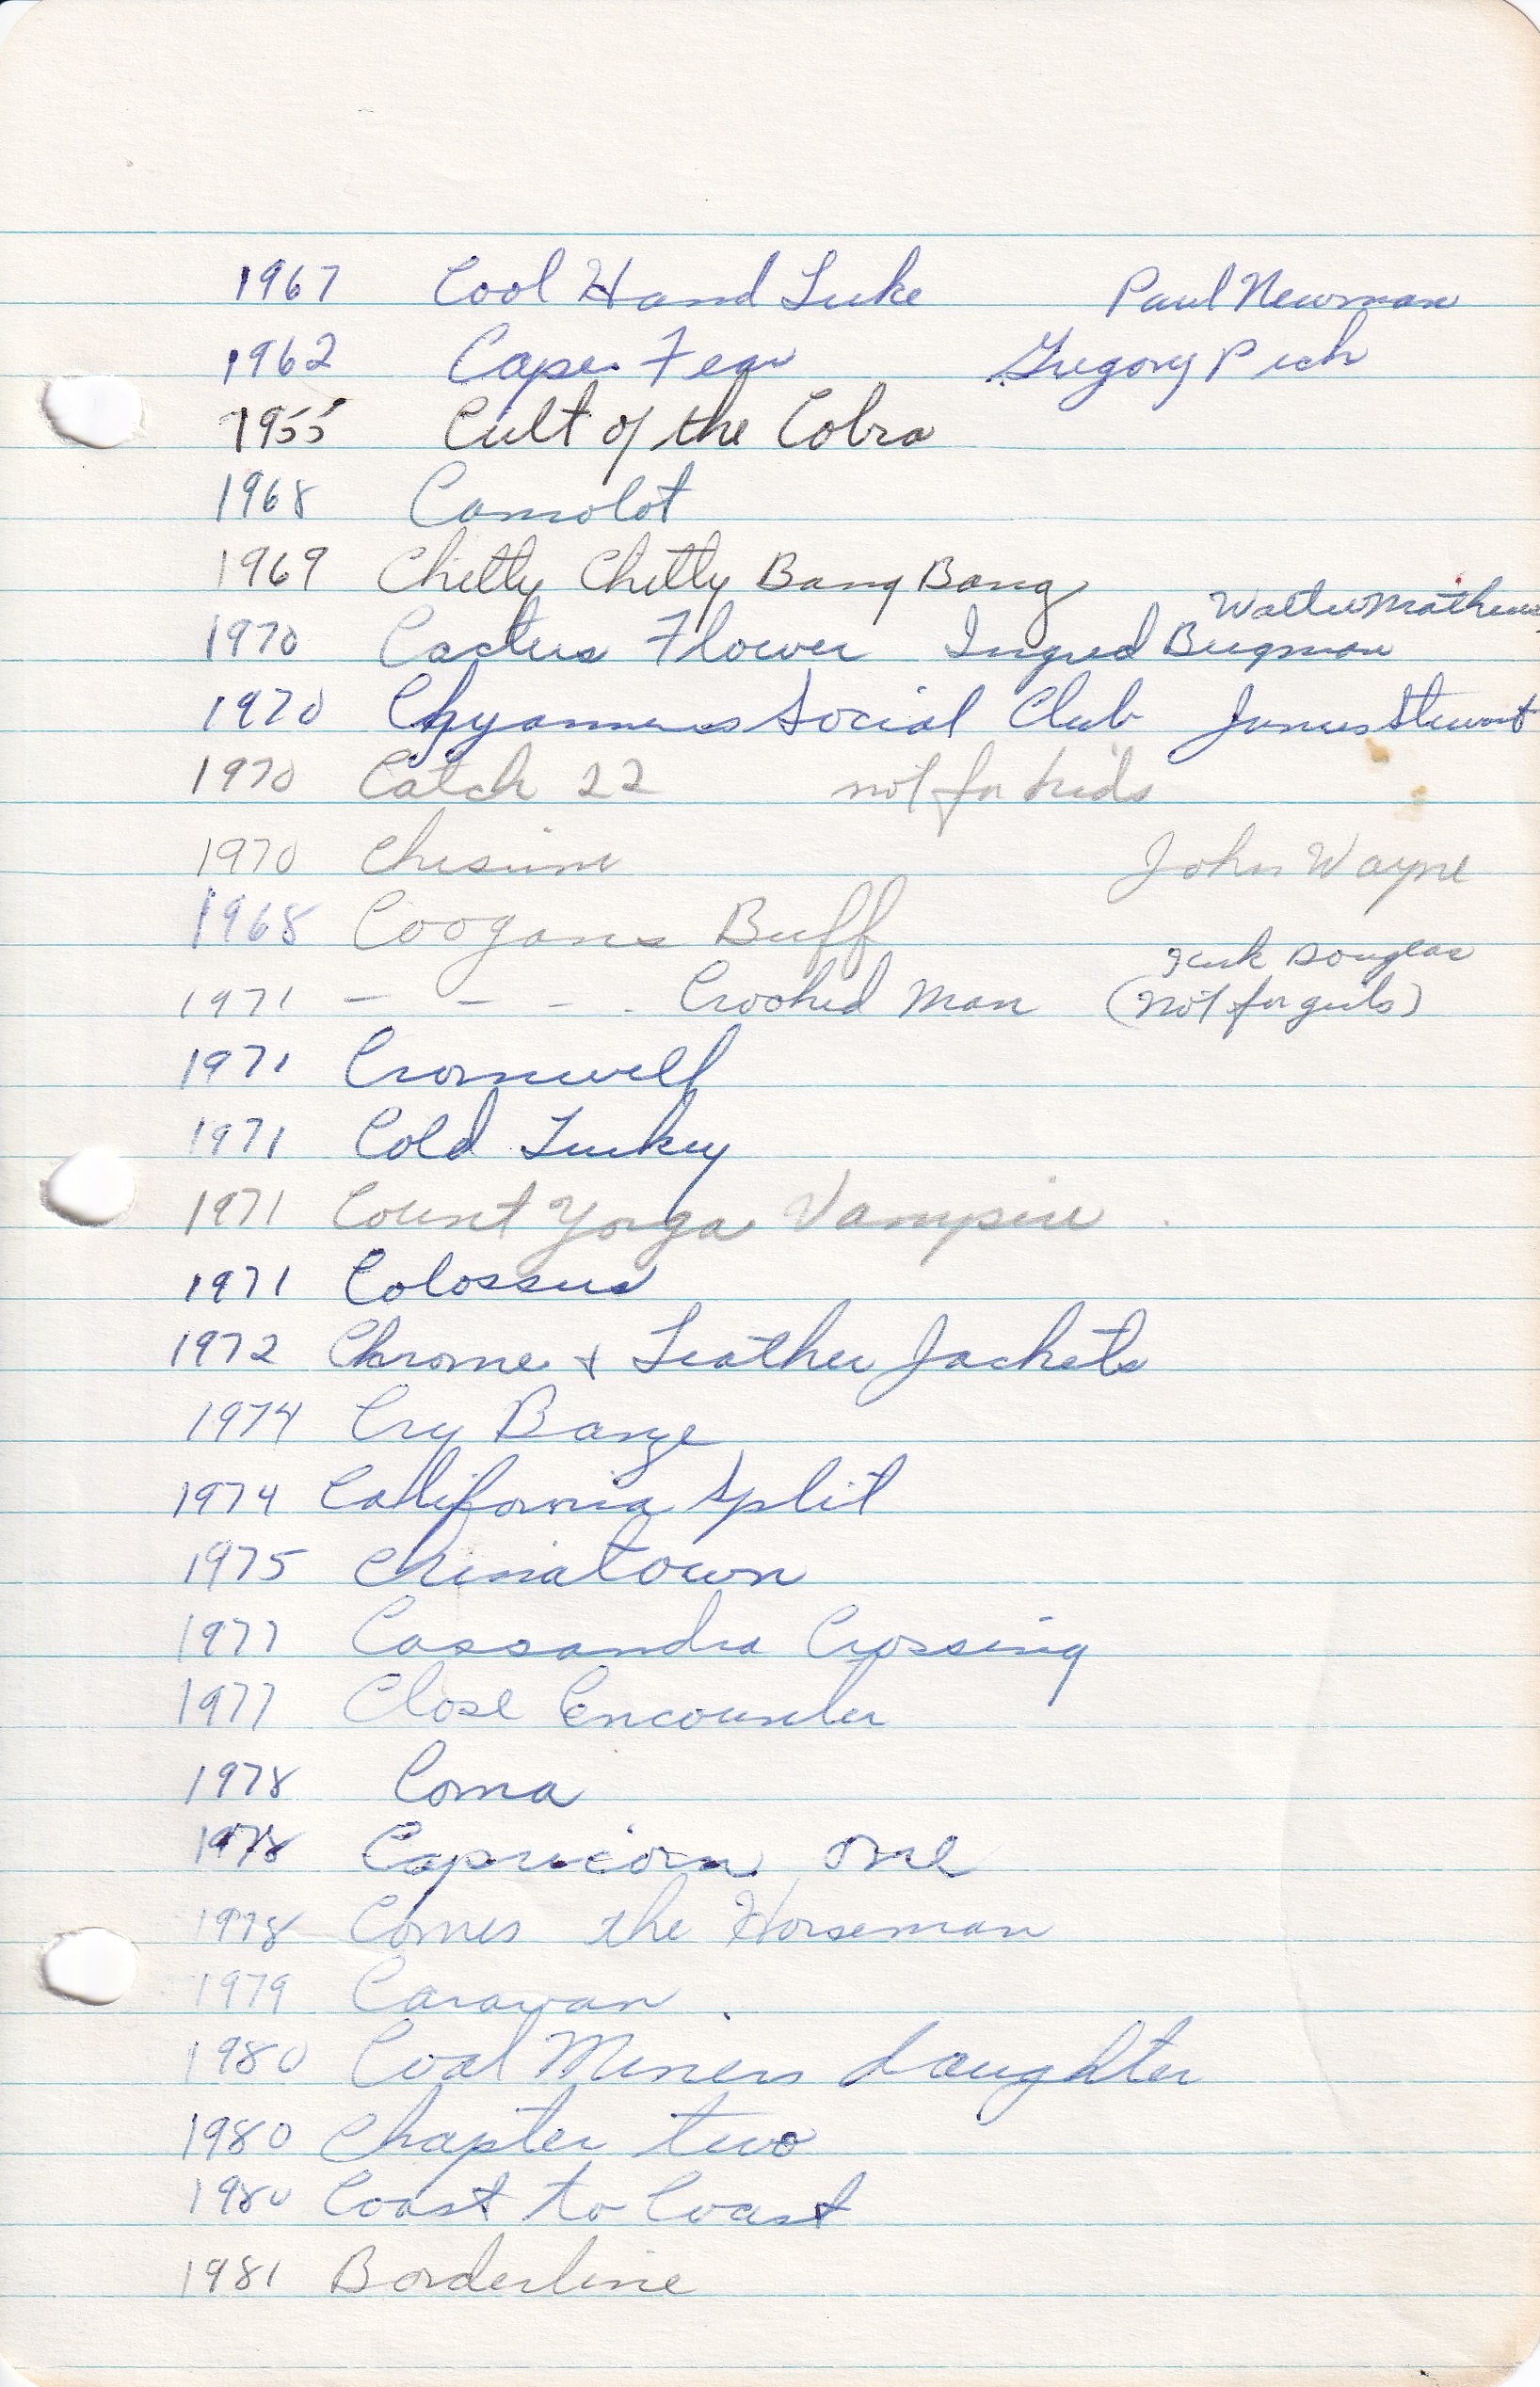 1967 Cool Hand Luke Paul Newman
1962 Cape Fear Gregory Peck
1955 Cult of the Cobra
1968 Camolot
1969 Chitty Chitty Bang Bang
Walter Mathew
1970 Cactus Flower Ingred Bergman
1970 Chyannes Social Club James Stewart
1970 Catch 22 not for kids
1970 Chisum John Wayne
1968 Coogans Buff
Kirk Douglas
1971 - - - Crooked Man (not for girls)
1971 Cromwell
1971 Cold Turkey
1971 Count Yorga Vampire
1971 Colossus
1972 Chrome & Leather Jackets
1974 Cry
1974 California Split
1975 Chinatown
1977 Cassandra Crossing
1977 Close Encounter
1978 Coma
1978 Capricorn One
1978 Comes the Horseman
1979 Caravan
1980 Coal Miners Daughter
1980 Chapter two
1980 Coast to Coast
1981 Borderline